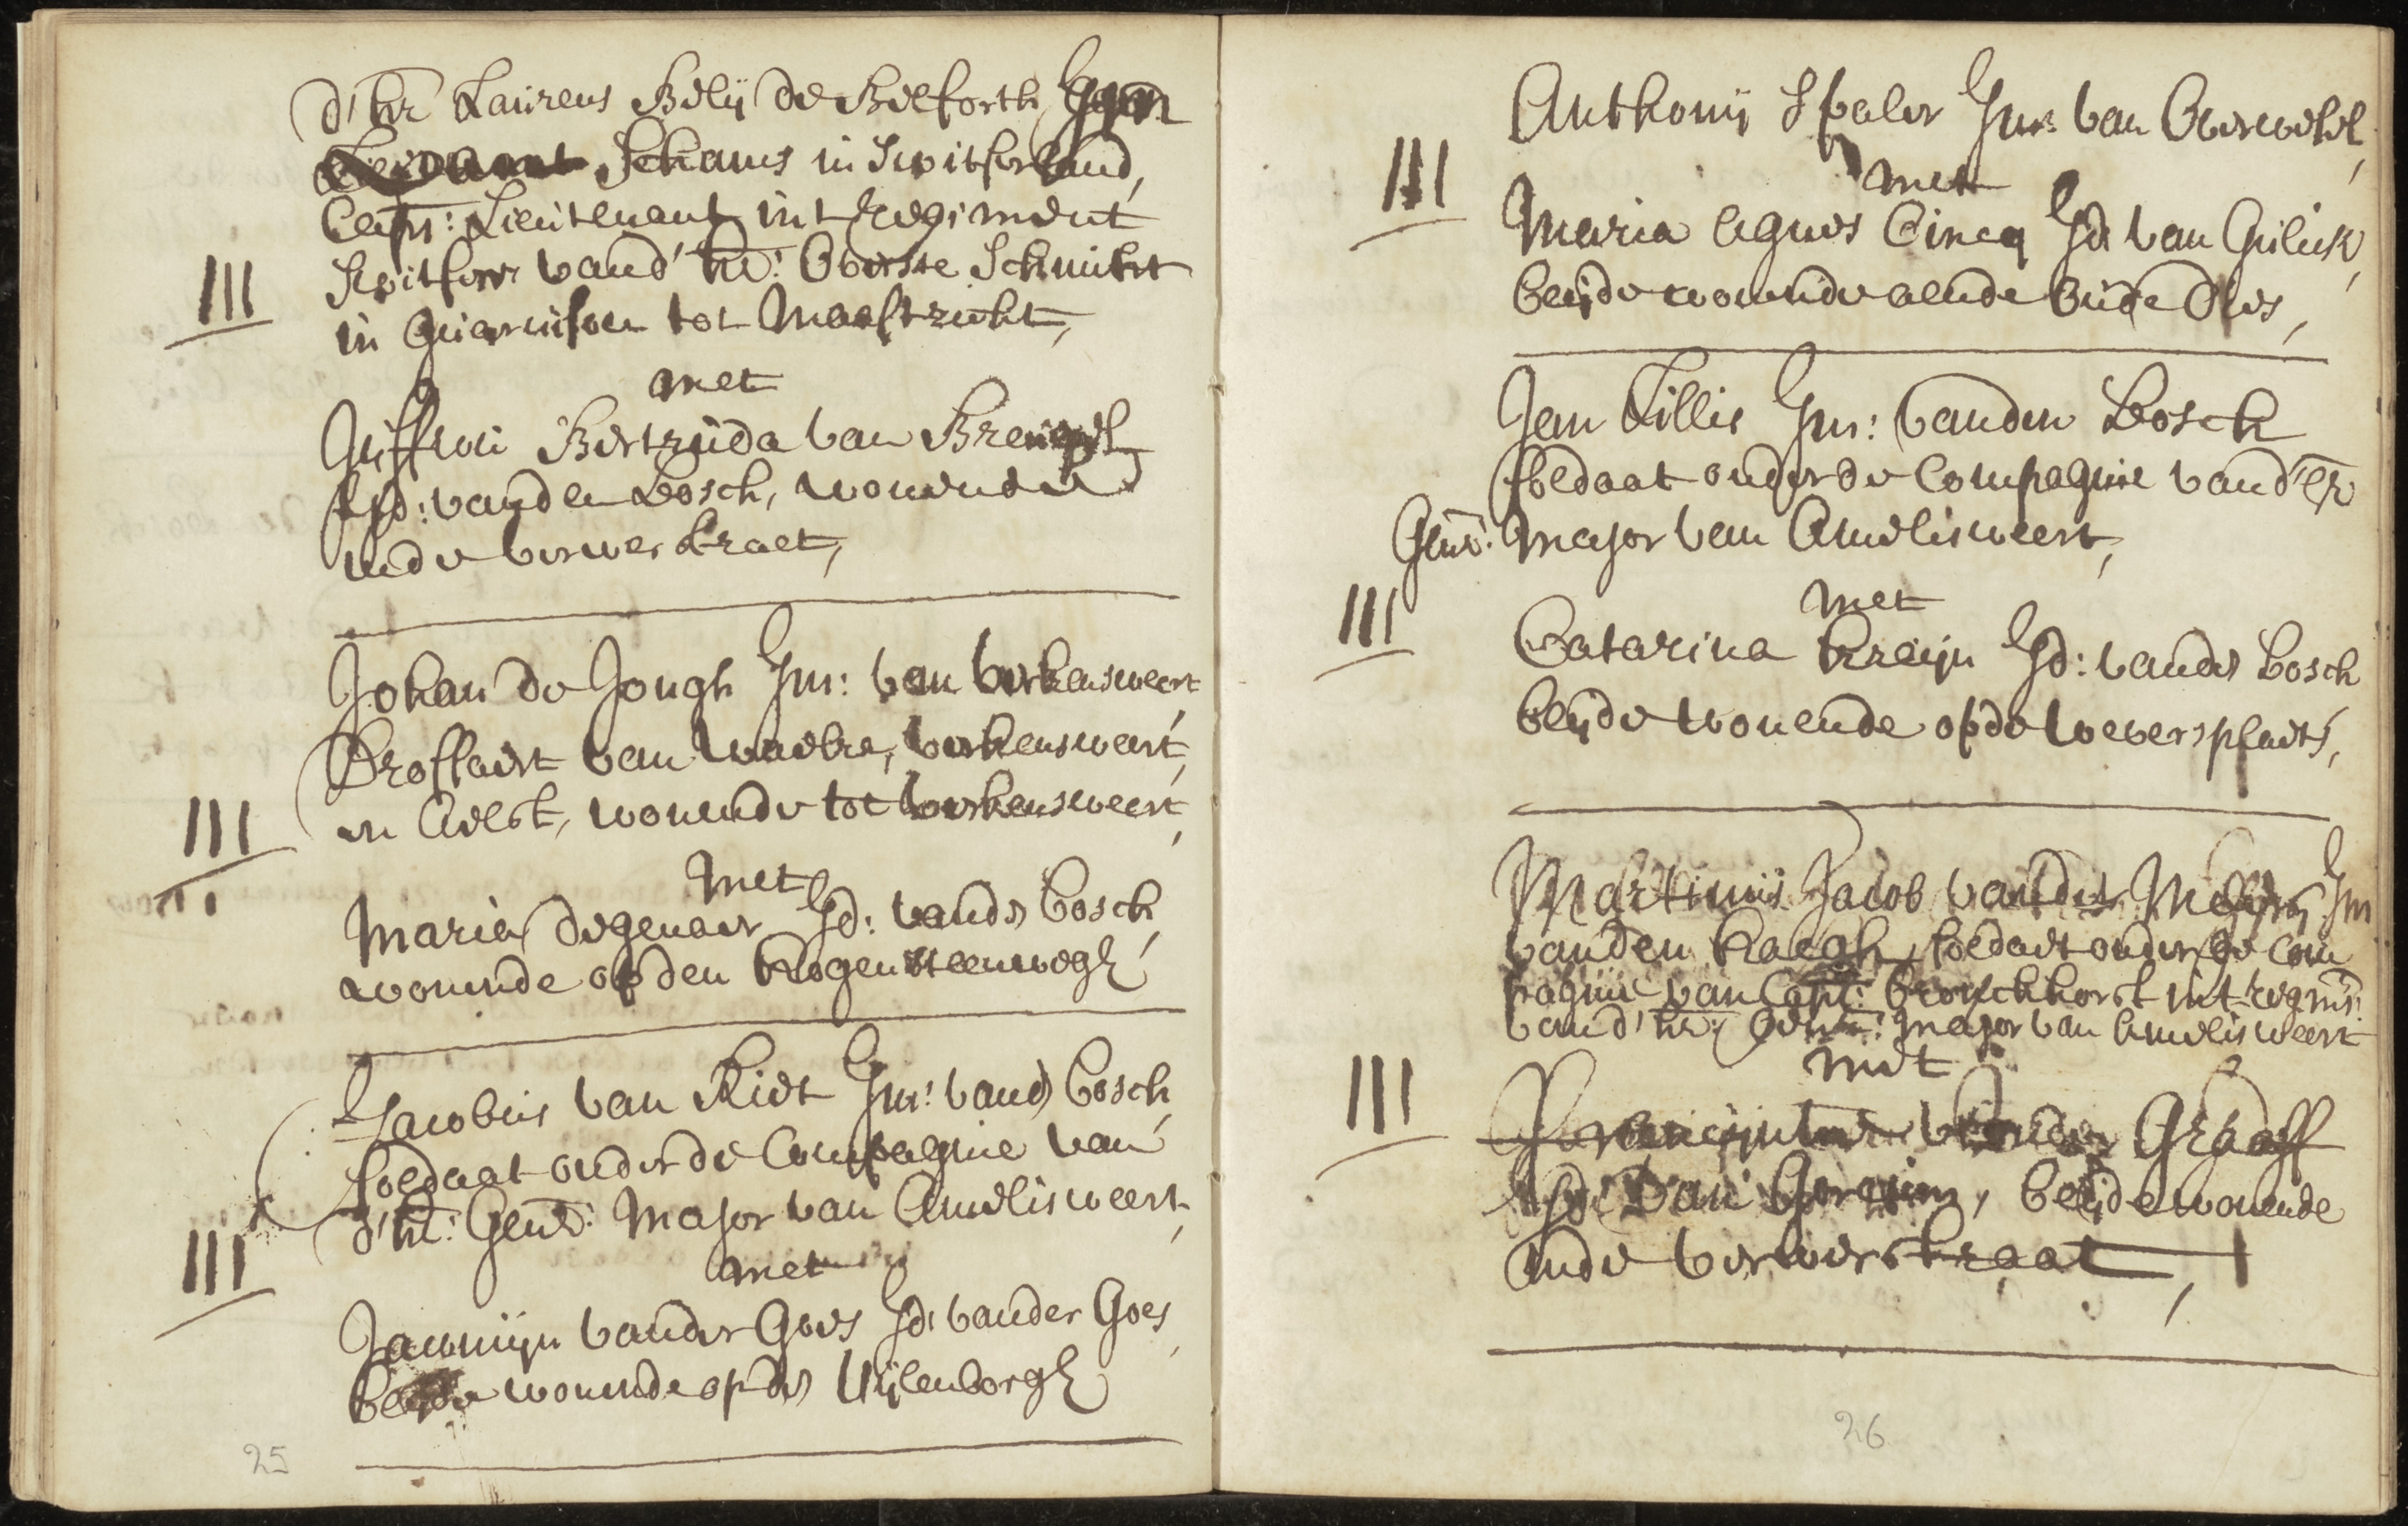 d'hr Laurens Bilij de Bilforth Jgm
Schans in Switserland,
Capt: Lieutenant int Regiment
Switsers vand' hr: Oversse Schmidt
in Guarnisoen tot Maastricht,
III
met
Juffrou Bertruda van
Jd: vanden Bosch, wonende
inde verwerstraet,
Johan de Jongh Jm: van berkensweert
Drossairt van Waelre, berkensweert,
en Aelst, wonende tot berkensweert,
III
met
Maria degenaer Jd: vands bosch,
wonende op den hogen steenwegh
Jacobus van Riet Jm: vands bosch
soldaat onder de Compagnie van
d'hr: Genr: Major van Amelisweert,
III
met
Jacomijn vander Goes Jd: vander Goes,
beijde wonende op ds Uijlenborgh
25
Anthonij Spaler Jm: van
III
met
Maria Agnes Cincq Jd: van Gulick,
beijde wonende aende Oude Dies,
Jan Tillis Jm: vanden Bosch
soldaat onder de Compagnie vand'hr
Genr: Major van Amelisweert,
III
met
Catarina Kreijn Jd: vands bosch
beijde wonende op de weversplaets,
Martinus Jacob vander Jm
vanden haegh, soldaet onder de Com
pagnie van Capt: bronckhorst int regmt:
vand' hr: Genr: Major van Amelisweert
III
met
vander Graaff
Jd: van Gorcum, beijde wonende
inde verwerstraat,
26